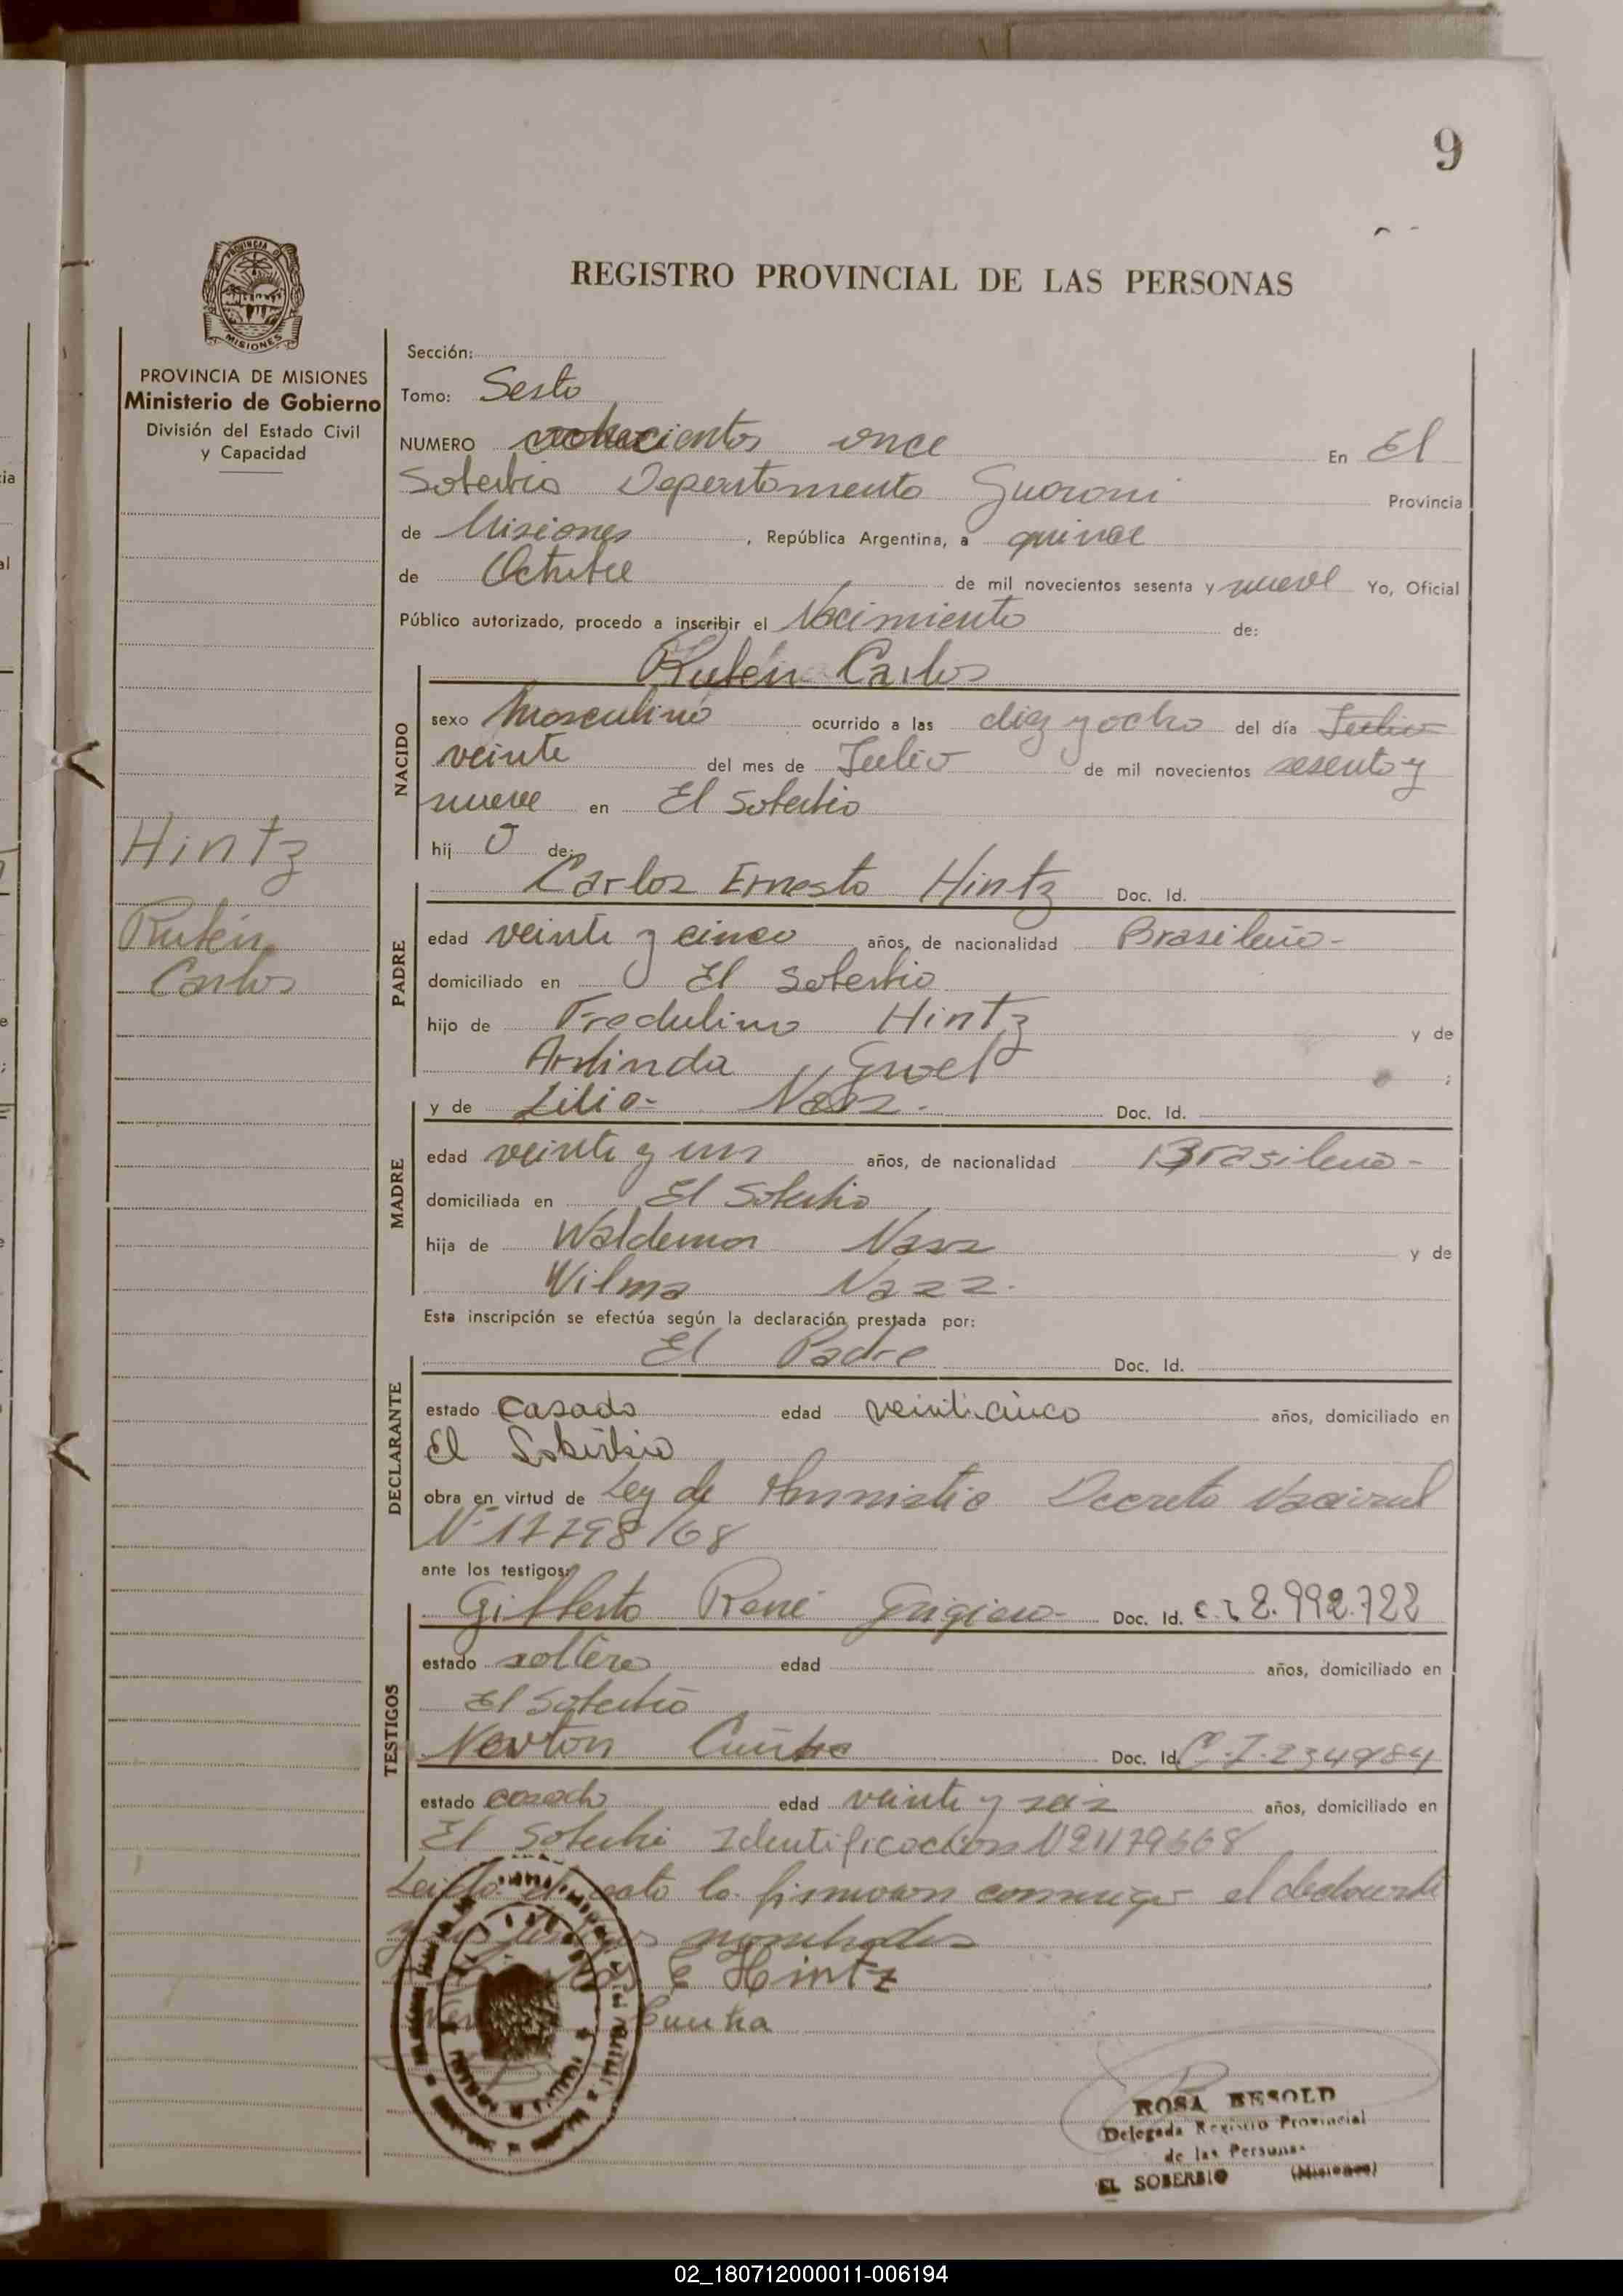 9
REGISTRO PROVINCIAL DE LAS PERSONAS
PROVINCIA DE MISIONES
Ministerio de Gobierno
División del Estado Civil
y Capacidad
Hintz
Rubén
Carlos
Sección:
Tomo: Sesto
NUMERO once En El
Soberbio Departamento Guarani Provincia
de Misiones, República Argentina, a quince
de Octubre de mil novecientos sesenta y nueve Yo, Oficial
Público autorizado, procedo a inscribir el Nacimiento de:
Rubén Carlos
NACIDO
sexo Masculino ocurrido a las diez y ocho del día Julio
veinte del mes de Julio de mil novecientos sesenta y
nueve en El Soberbio
hij o de:
Carlos Ernesto Hintz Doc. Id.
PADRE
edad veinte y cinco años, de nacionalidad Brasileño-
domiciliado en El Soberbio
hijo de Fredulino Hintz y de
Arlinda ;
y de Lilia- Doc. Id.
MADRE
edad veinte y un años, de nacionalidad Brasileno-
domiciliada en El Soberbio
hija de Waldemar y de
Wilma
Esta inscripción se efectúa según la declaración prestada por:
El Padre Doc. Id.
DECLARANTE
estado Casado edad veinticinco años, domiciliado en
El Soberbio
obra en virtud de Ley de Amnistia Decreto Nacional
Nº 17798/68
ante los testigos:
Gilberto René Doc. Id. C.I 8.992.722
TESTIGOS
estado soltero edad años, domiciliado en
El Soberbio
Newton Cunha Doc. Id. C.I.
estado casado edad veinte y seis años, domiciliado en
El Soberbio Identificacion
Leida el acta la firmaron conmigo el declarante
y los testigos nombrados
E Hintz
Cunha
ROSA BESOLD
Delegada Registro Provincial
de las Personas
EL SOBERBIO (Misiones)
02_180712000011-006194